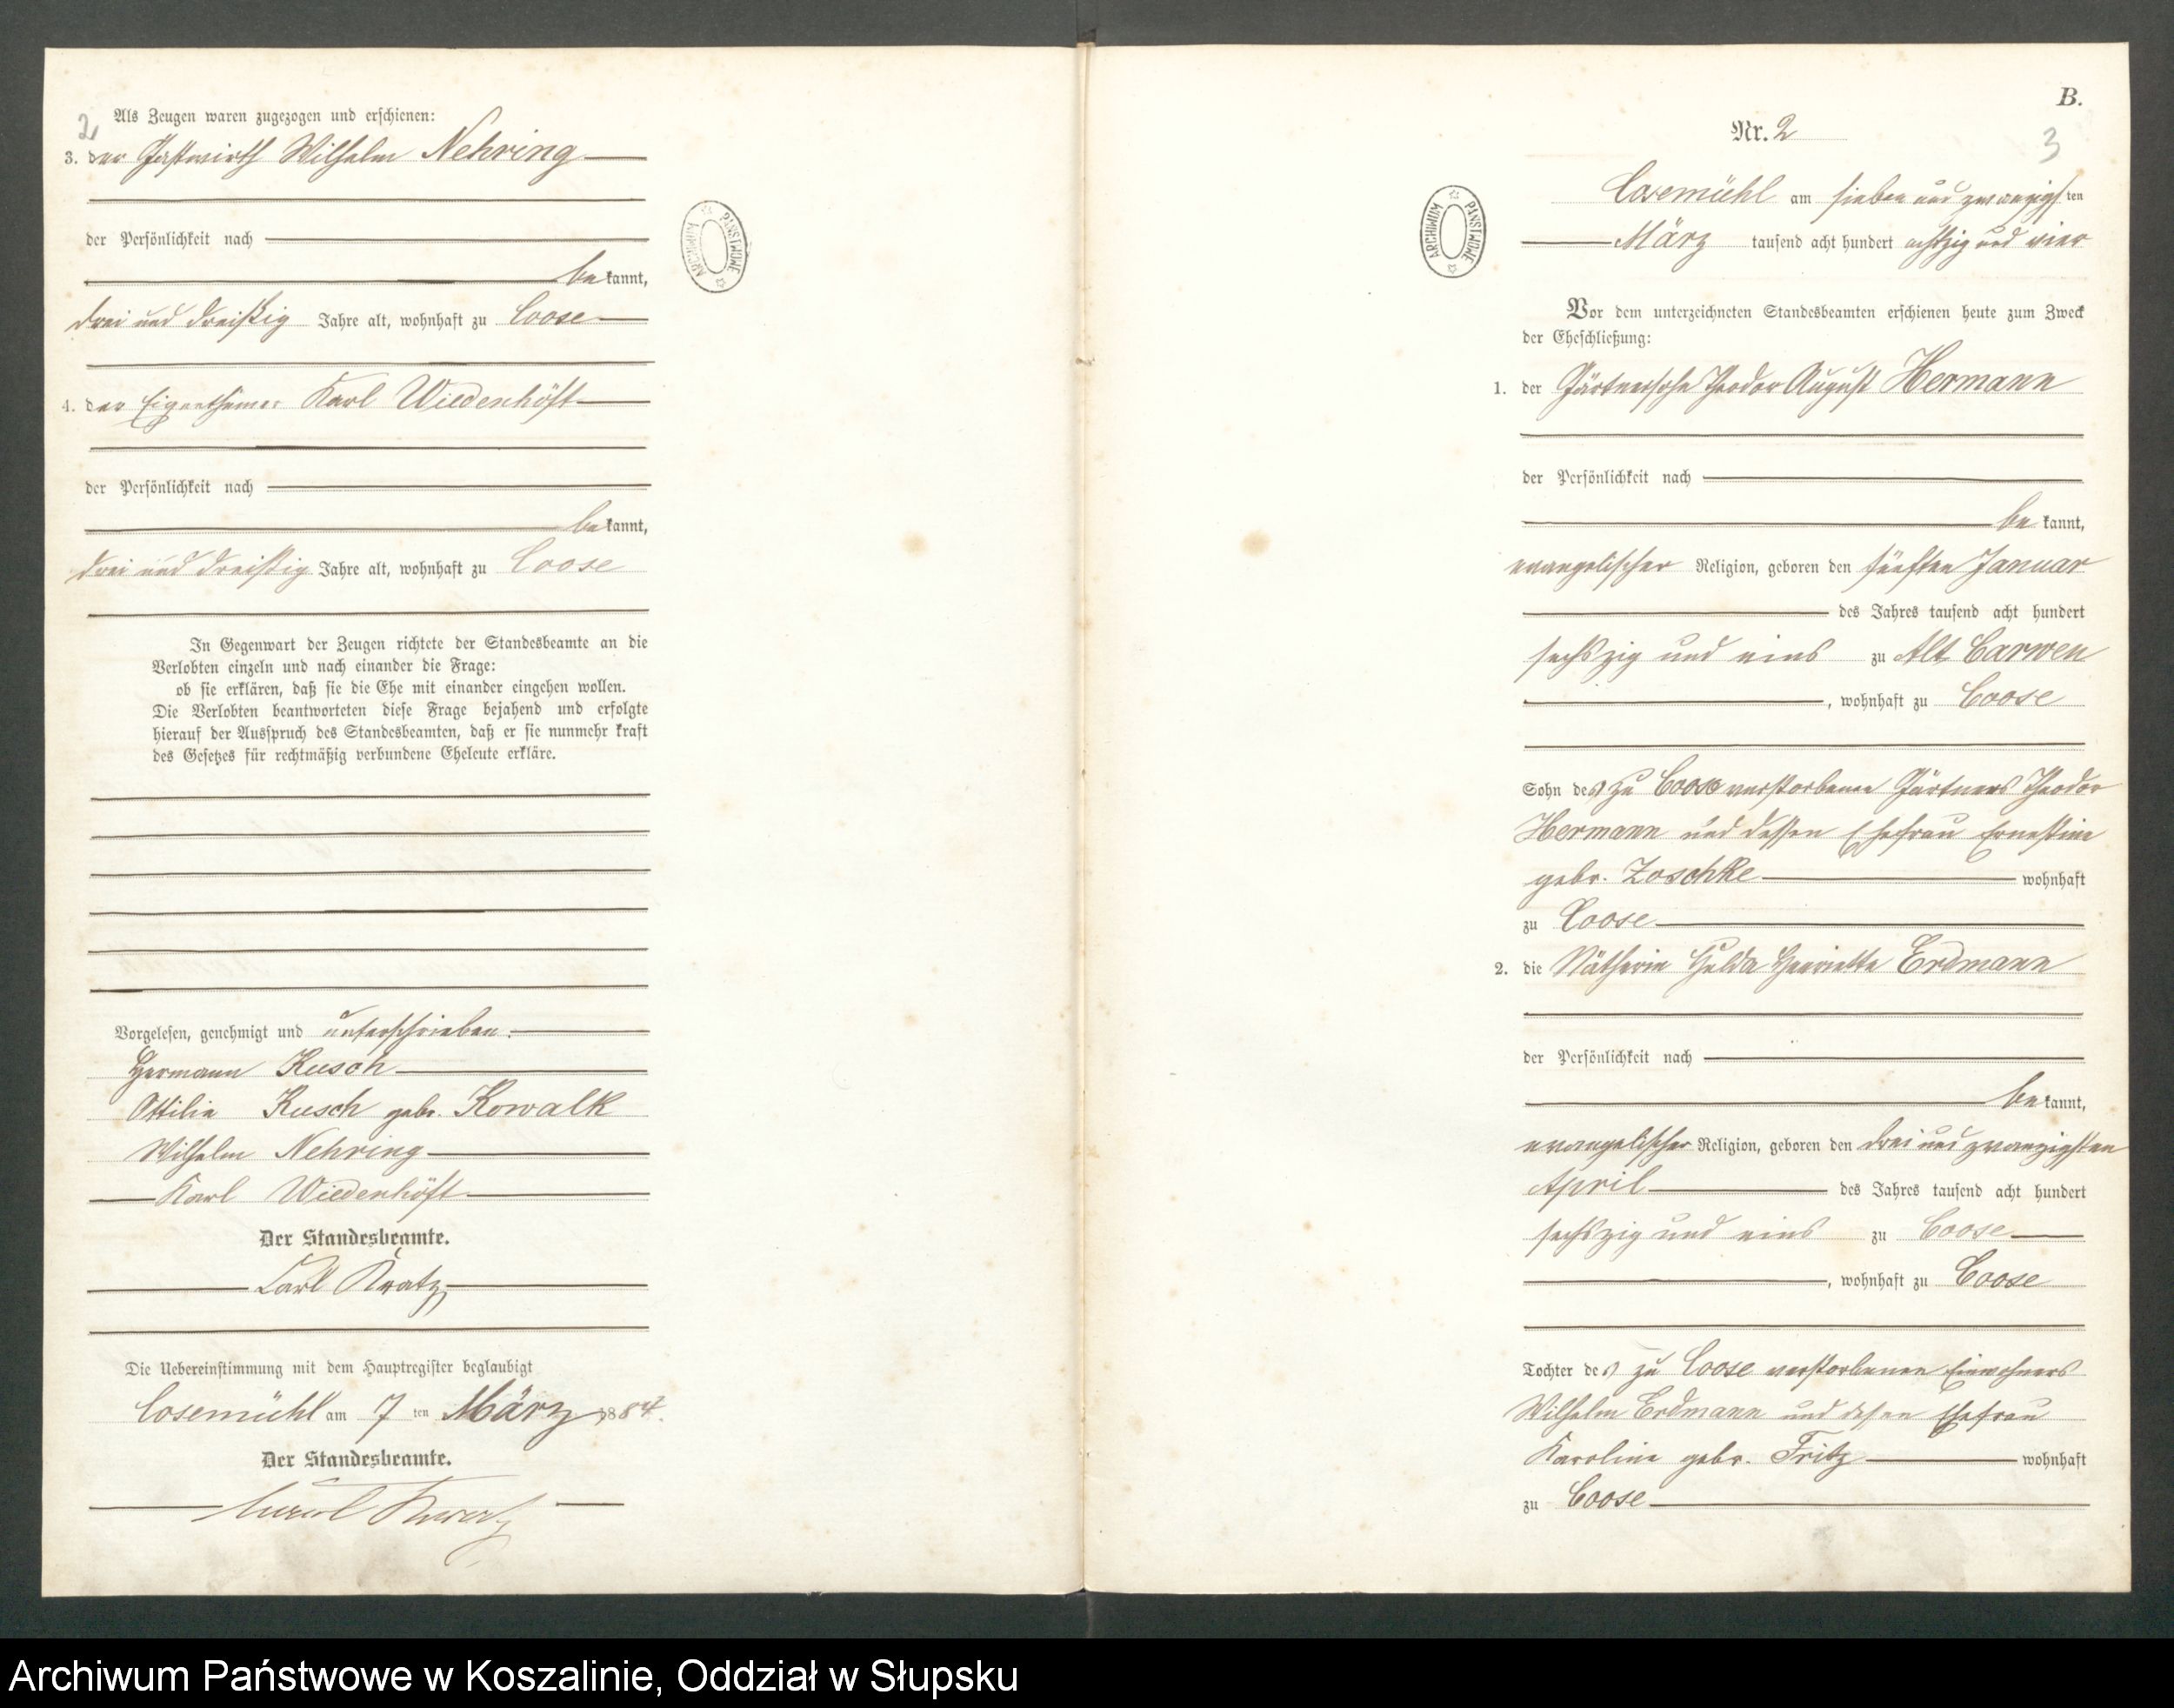 2
Als Zeugen waren zugezogen und erschienen:
3. der Gastwirth Wilhelm Nehring
der Persönlichkeit nach
bekannt,
drei und dreißig Jahre alt, wohnhaft zu Coose
4. der Eigenthümer Karl Wiedenhöft
der Persönlichkeit nach
bekannt,
drei und dreißig Jahre alt, wohnhaft zu Coose
In Gegenwart der Zeugen richtete der Standesbeamte an die
Verlobten einzeln und nach einander die Frage:
ob sie erklären, daß sie die Ehe mit einander eingehen wollen.
Die Verlobten beantworteten diese Frage bejahend und erfolgte
hierauf der Ausspruch des Standesbeamten, daß er sie nunmehr kraft
des Gesetzes für rechtmäßig verbundene Eheleute erkläre.
Vorgelesen, genehmigt und unterschrieben:
Hermann Kusch
Ottilie Kusch gebr. Kowalk
Wilhelm Nehring
Karl Wiedenhöft
Der Standesbeamte.
Carl Kratz
Die Uebereinstimmung mit dem Hauptregister beglaubigt
Cosemühl am 7 ten März 1884.
Der Standesbeamte.
ARCHIWUM PAŃSTWOWE
B.
Nr. 2
3
Cosemühl am sieben und zwanzigsten
März tausend acht hundert achtzig und vier
ARCHIWUM PAŃSTWOWE
Vor dem unterzeichneten Standesbeamten erschienen heute zum Zweck
der Eheschließung:
1. der Gärtnersohn Theodor August Hermann
der Persönlichkeit nach
bekannt,
evangelischer Religion, geboren den fünften Januar
des Jahres tausend acht hundert
sechszig und eins zu Alt Carwen
, wohnhaft zu Coose
Sohn des zu Coose verstorbenen Gärtners Theodor
Hermann und dessen Ehefrau Ernestine
gebr. Zoschke wohnhaft
zu Coose
2. die Nätherin Hulda Henriette Erdmann
der Persönlichkeit nach
bekannt,
evangelischer Religion, geboren den drei und zwanzigsten
April des Jahres tausend acht hundert
sechszig und eins zu Coose
, wohnhaft zu Coose
Tochter des zu Coose verstorbenen Einwohners
Wilhelm Erdmann und dessen Ehefrau
Karoline gebr. Fritz wohnhaft
zu Coose
Archiwum Państwowe w Koszalinie, Oddział w Słupsku